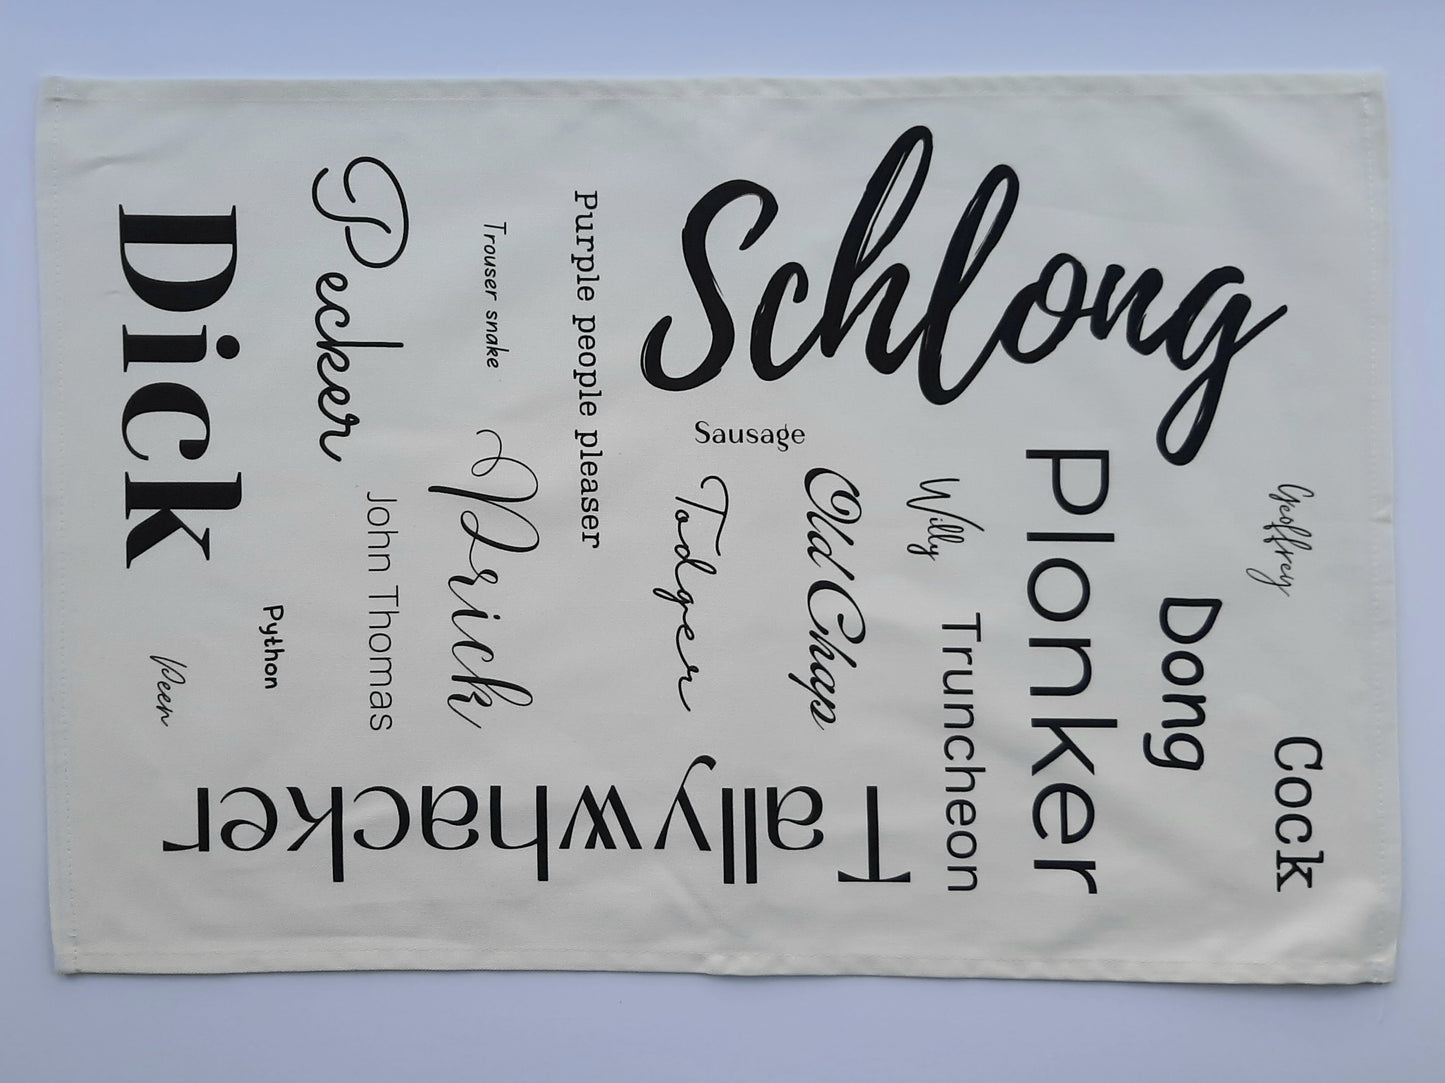 Cock
Geoffrey
Dong
Schlong
Plonker
Truncheon
Willy
Old Chap
Sausage
Todger
Tallywhacker
Purple people pleaser
Trouser snake
Prick
John Thomas
Pecker
Python
Dick
Peen